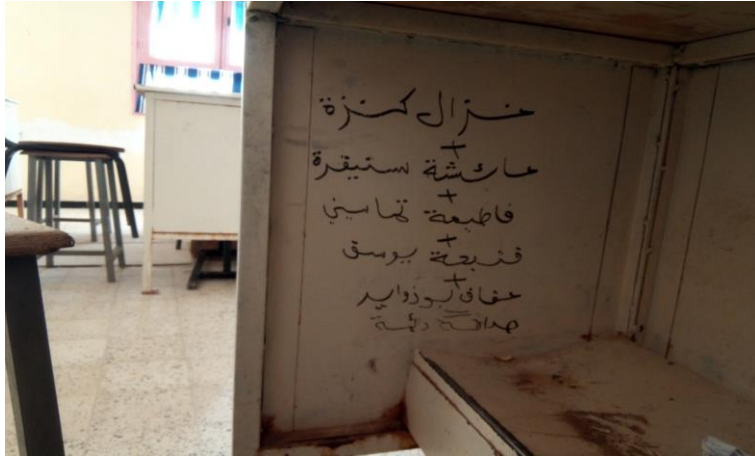 غزال كنزة
+
عائشة ستيقرة
+
فاطيمة تماسيني
+
يوسف
+
عفاف بوذوايد
صداقة دائمة